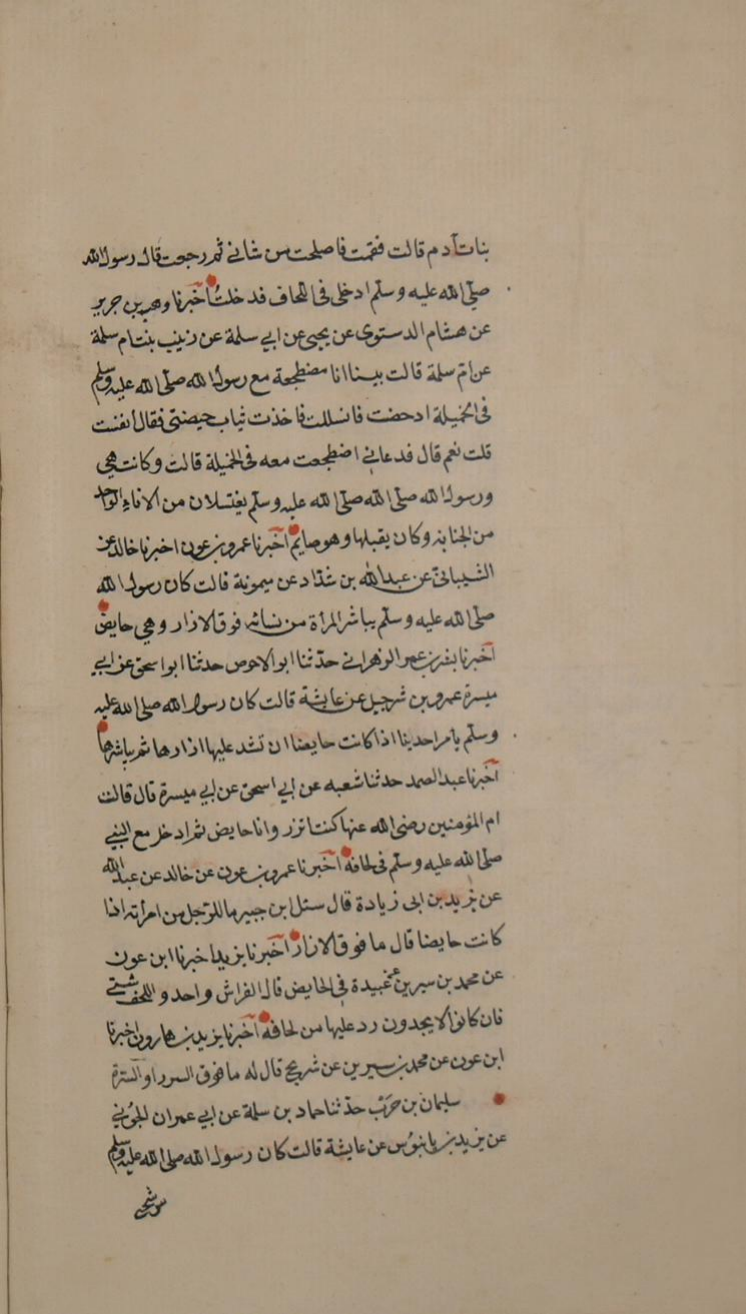 بنات آدم قالت فقمت فاصلحت من شانى ثم رجعت قال رسول الله
صلى الله عليه وسلم ادخلى فى اللحاف فدخلت اخبرنا وهب بن جرير
عن هشام الدستوى عن يحيى عن ابى سلمة عن زينب بنت ام سلمة
عن ام سلمة قالت بينا انا مضطجعة مع رسول الله صلى الله عليه وسلم
فى الخميلة اذ حضت فانسللت فاخذت ثياب حيضتى فقال انفست
قلت نعم قال فدعانى اضطجعت معه فى الخميلة قالت وكانت هي
ورسول الله صلى الله صلى الله عليه وسلم يغتسلان من الاناء الواحد
من الجنابة وكان يقبلها وهو صايم اخبرنا عمرو بن عون اخبرنا خالد عن
الشيبانى عن عبدالله بن شداد عن ميمونة قالت كان رسول الله
صلى الله عليه وسلم يباشر المراة من نسائه فوق الازار وهي حايض
اخبرنا بشر بن عمر الزهرانى حدثنا ابو الاحوص حدثنا ابو اسحق عن ابى
ميسرة عمرو بن شرحبيل عن عايشة قالت كان رسول الله صلى الله عليه
وسلم يامر احدينا اذا كانت حايضا ان تشد عليها ازارها ثم يباشرها
اخبرنا عبد الصمد حدثنا شعبه عن ابى اسحق عن ابى ميسرة قال قالت
ام المؤمنين رضى الله عنها كنت اتزر وانا حايض ثم ادخل مع النبى
صلى الله عليه وسلم فى لحافه اخبرنا عمرو بن عون عن خالد عن عبدالله
عن يزيد بن ابى زيادة قال سئل ابن جبير ما للرجل من امراته اذا
كانت حايضا قال ما فوق الازار اخبرنا يزيد اخبرنا ابن عون
عن محمد بن سيرين عن عبيدة فى الحايض قال الفراش واحد واللحف شتى
فان كانوا لا يجدون رد عليها من لحافه اخبرنا يزيد بن هارون اخبرنا
ابن عون عن محمد بن سيرين عن شريح قال له ما فوق السرر او السترة
سليمان بن حرب حدثنا حماد بن سلمة عن ابى عمران الجونى
عن يزيد بن بابنوس عن عايشة قالت كان رسول الله صلى الله عليه وسلم